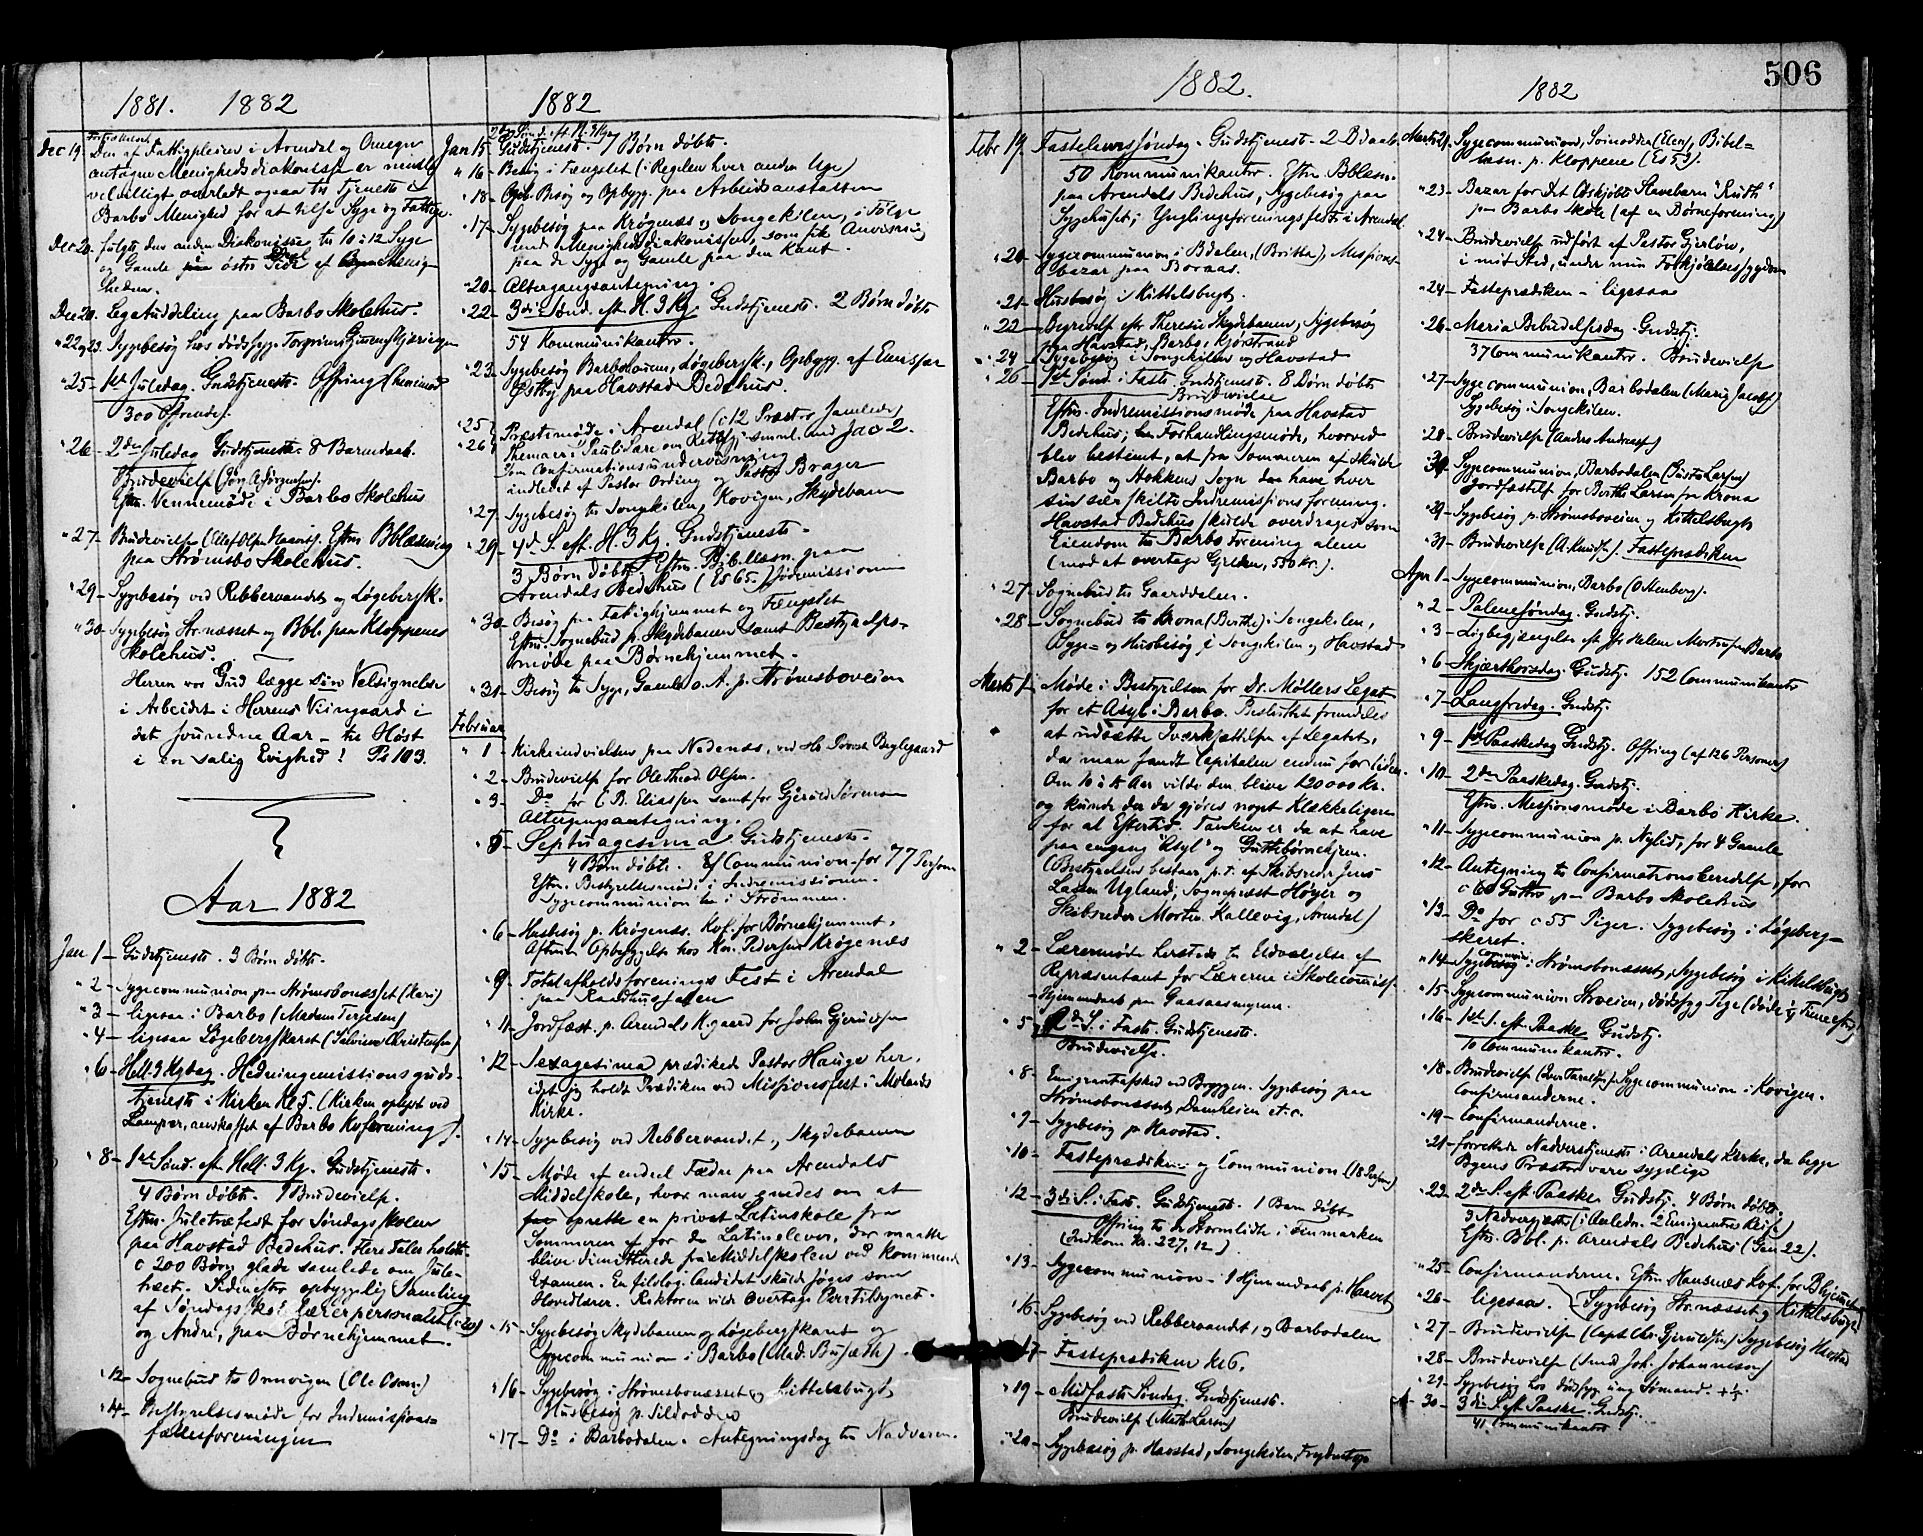 1881. 1882
Dec 19. Den af Fattigpleien i Arendal og Omegn
antagne Menighedsdiakonisse er nemlig
velvilligt overladt ogsaa til Tjeneste i
Barbo Menighed for at tilse Syge og Fattige.
Dec 20. fulgte den anden Diakonisse til 10 à 12 Syge
og Gamle østre Side af Menig-
heden.
Dec 20. Legatuddeling paa Barbo Skolehus.
" 22 og 23. Sygebesøg hos dødssyge
" 25 - 1ste Juledag. Gudstjeneste. Offring
300 Offrende).
" 26 - 2den Juledag Gudstjeneste. 8 Barnedaab.
Brudevielse (Jørg. A. Jørgensen).
Eftm. Vennemøde i Barbo Skolehus
" 27 - Brudevielse Eftm. Bblæsning
paa Strømsbo Skolehus.
" 29 - Sygebesøg ved Rebbervandet og Løgebergsk.
" 30 - Sygebesøg Str.næsset og Bbl. paa Kloppenes
Skolehus.
Herren vor Gud lægge Sin Velsignelse
i Arbeidet i Herrens Viingaard i
det svundne Aar - til Høst
i en salig Evighed! Ps 103.
Aar 1882
Jan 1 - Gudstjeneste. 3 Børn døbte.
" 2 - Sygecommunion paa Strømsbonesset (Kari)
" 3 - ligesaa i Barbo (Madam Terjesen)
" 4 - ligesaa Løgebergskaret (Silvine Christensen)
" 6 - Hell. 3 Kgdag. Hedningemissionsguds-
tjeneste i Kirken Kl 5. (Kirken oplyst ved
Lamper, anskaffet af Barbo Kvforening).
" 8 - 1ste Sønd. eft Hell. 3 Kg. Gudstjeneste.
4 Børn døbte. 1 Brudevielse.
Eftm. Juletræfest for Søndagsskolen
paa Havstad Bedehus. Flere Taler holdt
c 200 Børn glade samlede om Jule-
træet. Sidenefter opbyggelig Samling
af Søndagsskolelærerpersonalet (c 20)
og Andre, paa Børnehjemmet.
" 12 - Sognebud til Omvigen (Ole Osm.)
" 14 - Bestyrelsesmøde for Indremissions-
fællesforeningen
1882
2den Sønd. eft. H. 3 Kg
Jan 15 Gudstjeneste. 7 Børn døbte.
" 16 - Besøg i Fængslet (i Regelen hver anden Uge)
" 18 - Besøg og Opbygg. paa Arbeidsanstalten
" 17 - Sygebesøg paa Krøgenæs og Songekilen, i Følge
med Menighedsdiakonissen, som fik Anvisning
paa de Syge og Gamle paa den Kant.
" 20 - Altergangsantegning.
" 22 - 3die Sønd. eft. H. 3 Kg. Gudstjeneste. 2 Børn døbte
54 Kommunikanter.
" 23 - Sygebesøg Barboveien, Løgebergsk., Opbygg. af Emissær
Østby paa Havstad Bedehus.
" 25 } Præstemøde i Arendal (c 12 Præster samlede)
" 26 } Themaer: Pauli Lære om Retfg. smnl. med Jac 2.
Om Confirmationsundervisning
indledet af Pastor Ording og Pastor Brager
" 27 - Sygebesøg til Songekilen, Kovigen, Skydebanen
" 29 - 4de S. eft. H. 3 Kg. Gudstjeneste.
3 Børn døbte. Eftm. Bibellæsn. paa
Arendals Bedehus (Es 65. Jødemissionen
" 30 - Besøg paa Fattighjemmet og Fængslet
Eftm. Sognebud p. Skydebanen samt Bestyrelses-
møde paa Børnehjemmet.
" 31 - Besøg til Syge, Gamle o. A. p. Strømsboveien
Februar
" 1 - Kirkeindvielsen paa Nedenæs, ved Hr. Provst Buglegaard
" 2 - Brudevielse for Ole Throd. Olsen.
" 3 - Do for C. B. Eliassen samt for Gjeruld Sørensen
Altergangsantegning.
" 5 - Septuagesima Gudstjeneste.
4 Børn døbte. Communion for 77 Person
Eftm. Bestyrelsesmøde i Indremissionen.
Sygecommunion i Strømmen.
" 6 - Husbesøg p. Krøgenæs. Kvf. for Børnehjemmet.
Aften Opbyggelse hos Kar. Pedersen Krøgenæs
" 9 - Totalafholdsforenings Fest i Arendal
paa Raadhussalen
" 11 - Jordfæst. p. Arendals K.gaard for John Gjeruldsen
" 12 - Sexagesima prædiked Pastor Hauge her,
idet jeg holdt Prædiken ved Missionsfest i Molands
Kirke.
" 14 - Sygebesøg ved Rebbervandet og Skydebanen
" 15 - Møde af endeel Fædre paa Arendals
Middelskole, hvor man enedes om at
oprette en privat Latinskole fra
Sommeren af for de Latinelever, der maatte
blive dimitterede fra Middelskolen ved kommende
Examen. En filolog. Candidat skulde søges som
Hovedlærer. Rektoren vilde overtage Partibynet.
" 15 - Sygebesøg Skydebanen og Løgebergskaret og
Sygecommunion i Barbo (Mad. Bufæth).
" 16 - Sygebesøg i Strømsbonæsset og Kittelsbugt
Husbesøg p. Sildodden
" 17 - Do i Barbodalen. Antegningsdag til Nadveren.
1882.
Febr 19. Fastelavnssøndag. Gudstjeneste. 2 Bdaab.
50 Kommunikanter. Eftm. Bblæsn.
paa Arendals Bedehus, Sygebesøg paa
Sygehuset; Ynglingeforeningsfest i Arendal.
" 20 - Sygecommunion i Bdalen, (Britta), Missions-
bazar paa Boraas.
" 21 - Husbesøg i Kittelsbugt.
" 22 - Begravelse efter Therese Skydebanen, Sygebesøg
paa Havstad, Barbo, Kjørstrand
" 24 - Sygebesøg i Songekilen og Havstad
" 26 - 1ste Sønd. i Faste. Gudstjeneste. 8 Børn døbte
Brudevielse
Eftm. Indremissionsmøde paa Havstad
Bedehus; Forhandlingsmøde, hvorved
blev bestemt, at fra Sommeren af skulde
Barbo og Stokkens Sogn have hver
sin særskilte Indremissionsforening.
Havstad Bedehus skulde overdrages som
Eiendom til Barbo Forening alene
(mod at overtage Gjelden, 550 kr.).
" 27 - Sognebud til Gaarddalen.
" 28 - Sognebud til Krona (Berthe) i Songekilen,
Syge- og Husbesøg i Songekilen og Havstad
Marts 1 - Møde i Bestyrelsen for Dr. Møllers Legat
for et Asyl i Barbo. Besluttet fremdeles
at udsætte Iværksættelse af Legatet,
da man fandt Capitalen endnu for liden.
Om 10 à 12 Aar vilde den blive 12000 Kr.
og kunde der da gjøres noget Klækkeligere
for al Eftertid. Tanken er da at have
paa engang "Asyl" og Guttebørnehjem.
(Bestyrelsen bestaar p. t. af Skibsreder Jens
Lassen Ugland; Sognepræst Høyer og
Skibsreder Morten Kallevig, Arendal)
" 2 - Lærermøde herstedes til Udvælgelse af
Repræsentant for Lærerne i Skolecomiss.
- Hjemmedaab paa Gaasaasmyrene.
" 5 2den S. i Faste. Gudstjeneste.
Brudevielse.
" 8 - Emigrantafsked ved Bryggen. Sygebesøg paa
Strømsbonæsset, Damheien et c.
" 9 - Sygebesøg p. Havstad.
" 10 - Fasteprædiken og Communion (18 Person)
" 12 - 3die S. i Faste. Gudstjeneste. 1 Barn døbt
Offring til Dr Stormlidte i Finmarken
(Indkom Kr. 227,12)
" 13 - Sygecommunion - 1 Hjemmedaab p. Havstad
" 16 - Sygebesøg ved Rebbervandet, og Barbodalen
" 17 - Fasteprædiken Kl 6.
" 19 - Midfaste Søndag. Gudstjeneste.
Brudevielse (Math. Larsen)
" 20 - Sygebesøg p. Havstad, Songekilen,
1882
506
Marts 21. Sygecommunion, Svinodden (Elen), Bibel-
læsn. p. Kloppene (Es 53).
" 23 - Bazar for det Frikjøbte Slavebarn "Ruth"
paa Barbo Skole (af en Børneforening)
" 24 - Brudevielse udført af Pastor Gjerløw,
i mit Sted, under min Forkjølelsessygdom
" 24 - Fasteprædiken - ligesaa
" 26 - Maria Bebudelsesdag Gudstj.
37 Communikanter. Brudevielse
" 27 - Sygecommunion, Barbodalen (Marie Jacobsen)
Sygebesøg i Songekilen.
" 28 - Brudevielse (Anders Andreassen)
Sygecommunion, Barbodalen (Gusta Larsen)
Jordfæstelse for Berthe Larsen fra Krona
" 29 - Sygebesøg p. Strømsboveien og Kittelsbugt
" 31 - Brudevielse (A. Knudsen). Fasteprædiken
Apr 1 - Sygecommunion, Barbo (Ottenberg).
" 2 - Palmesøndag. Gudstj.
" 3 - Ligbegjængelse eft. Helene Mortensen Barbo
" 6 - Skjærthorsdag. Gudstj. 152 Communikanter
" 7 - Langfredag. Gudstj.
" 9 - 1ste Paaskedag Gudstj. Offring (af 126 Personer)
" 10 - 2den Paaskedag. Gudstj.
Eftm. Missionsmøde i Barbo Kirke.
" 11 - Sygecommunion p. Nylid, for 4 Gamle
" 12 - Antegning til Confirmationsberedelse, for
c 60 Gutter p. Barbo Skolehus
" 13 - Do for c 55 Piger. Sygebesøg i Løgeberg-
skaret.
" 14 - Sygecommun. i Strømsbonæsset, Sygebesøg i Kittelsbugt
" 15 - Sygecommunion Str.veien, dødssyg Pige
" 16 - 1ste S. eft Paaske Gudstj.
10 Communikanter.
" 18 - Brudevielse Sygecommunion i Kovigen.
Confirmanderne.
" 19 - Confirmanderne.
" 21 - forrettede Nadvertjeneste i Arendals Kirke, da begge
Byens Præster vare sygelige
" 23 - 2den S. eft Paaske Gudstj. 4 Børn døbte.
3 Nadvergjæster (i Anledn. 2 Emigranters Reise)
Eftm. Bbl. p. Arendals Bedehus (Gen 22).
" 25 - Confirmanderne. Eftm Hansnæs Kvf. for Bhjemmet
" 26 - ligesaa. (Sygebesøg Str.næsset og Kittelsbugt)
" 27 - Brudevielse (Capt. Chr. Gjeruldsen) Sygebesøg Havstad
" 28 - Brudevielse (Smed Joh. Johannesen)
" 29 - Sygebesøg hos dødssyg ung Sømand.
" 30 - 3die S. eft Paaske. Gudstj.
41 Communikanter